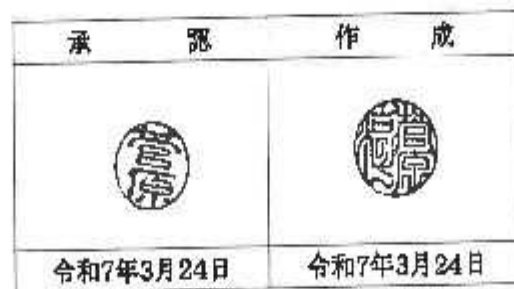 承認 作成
菅原
令和7年3月24日 令和7年3月24日